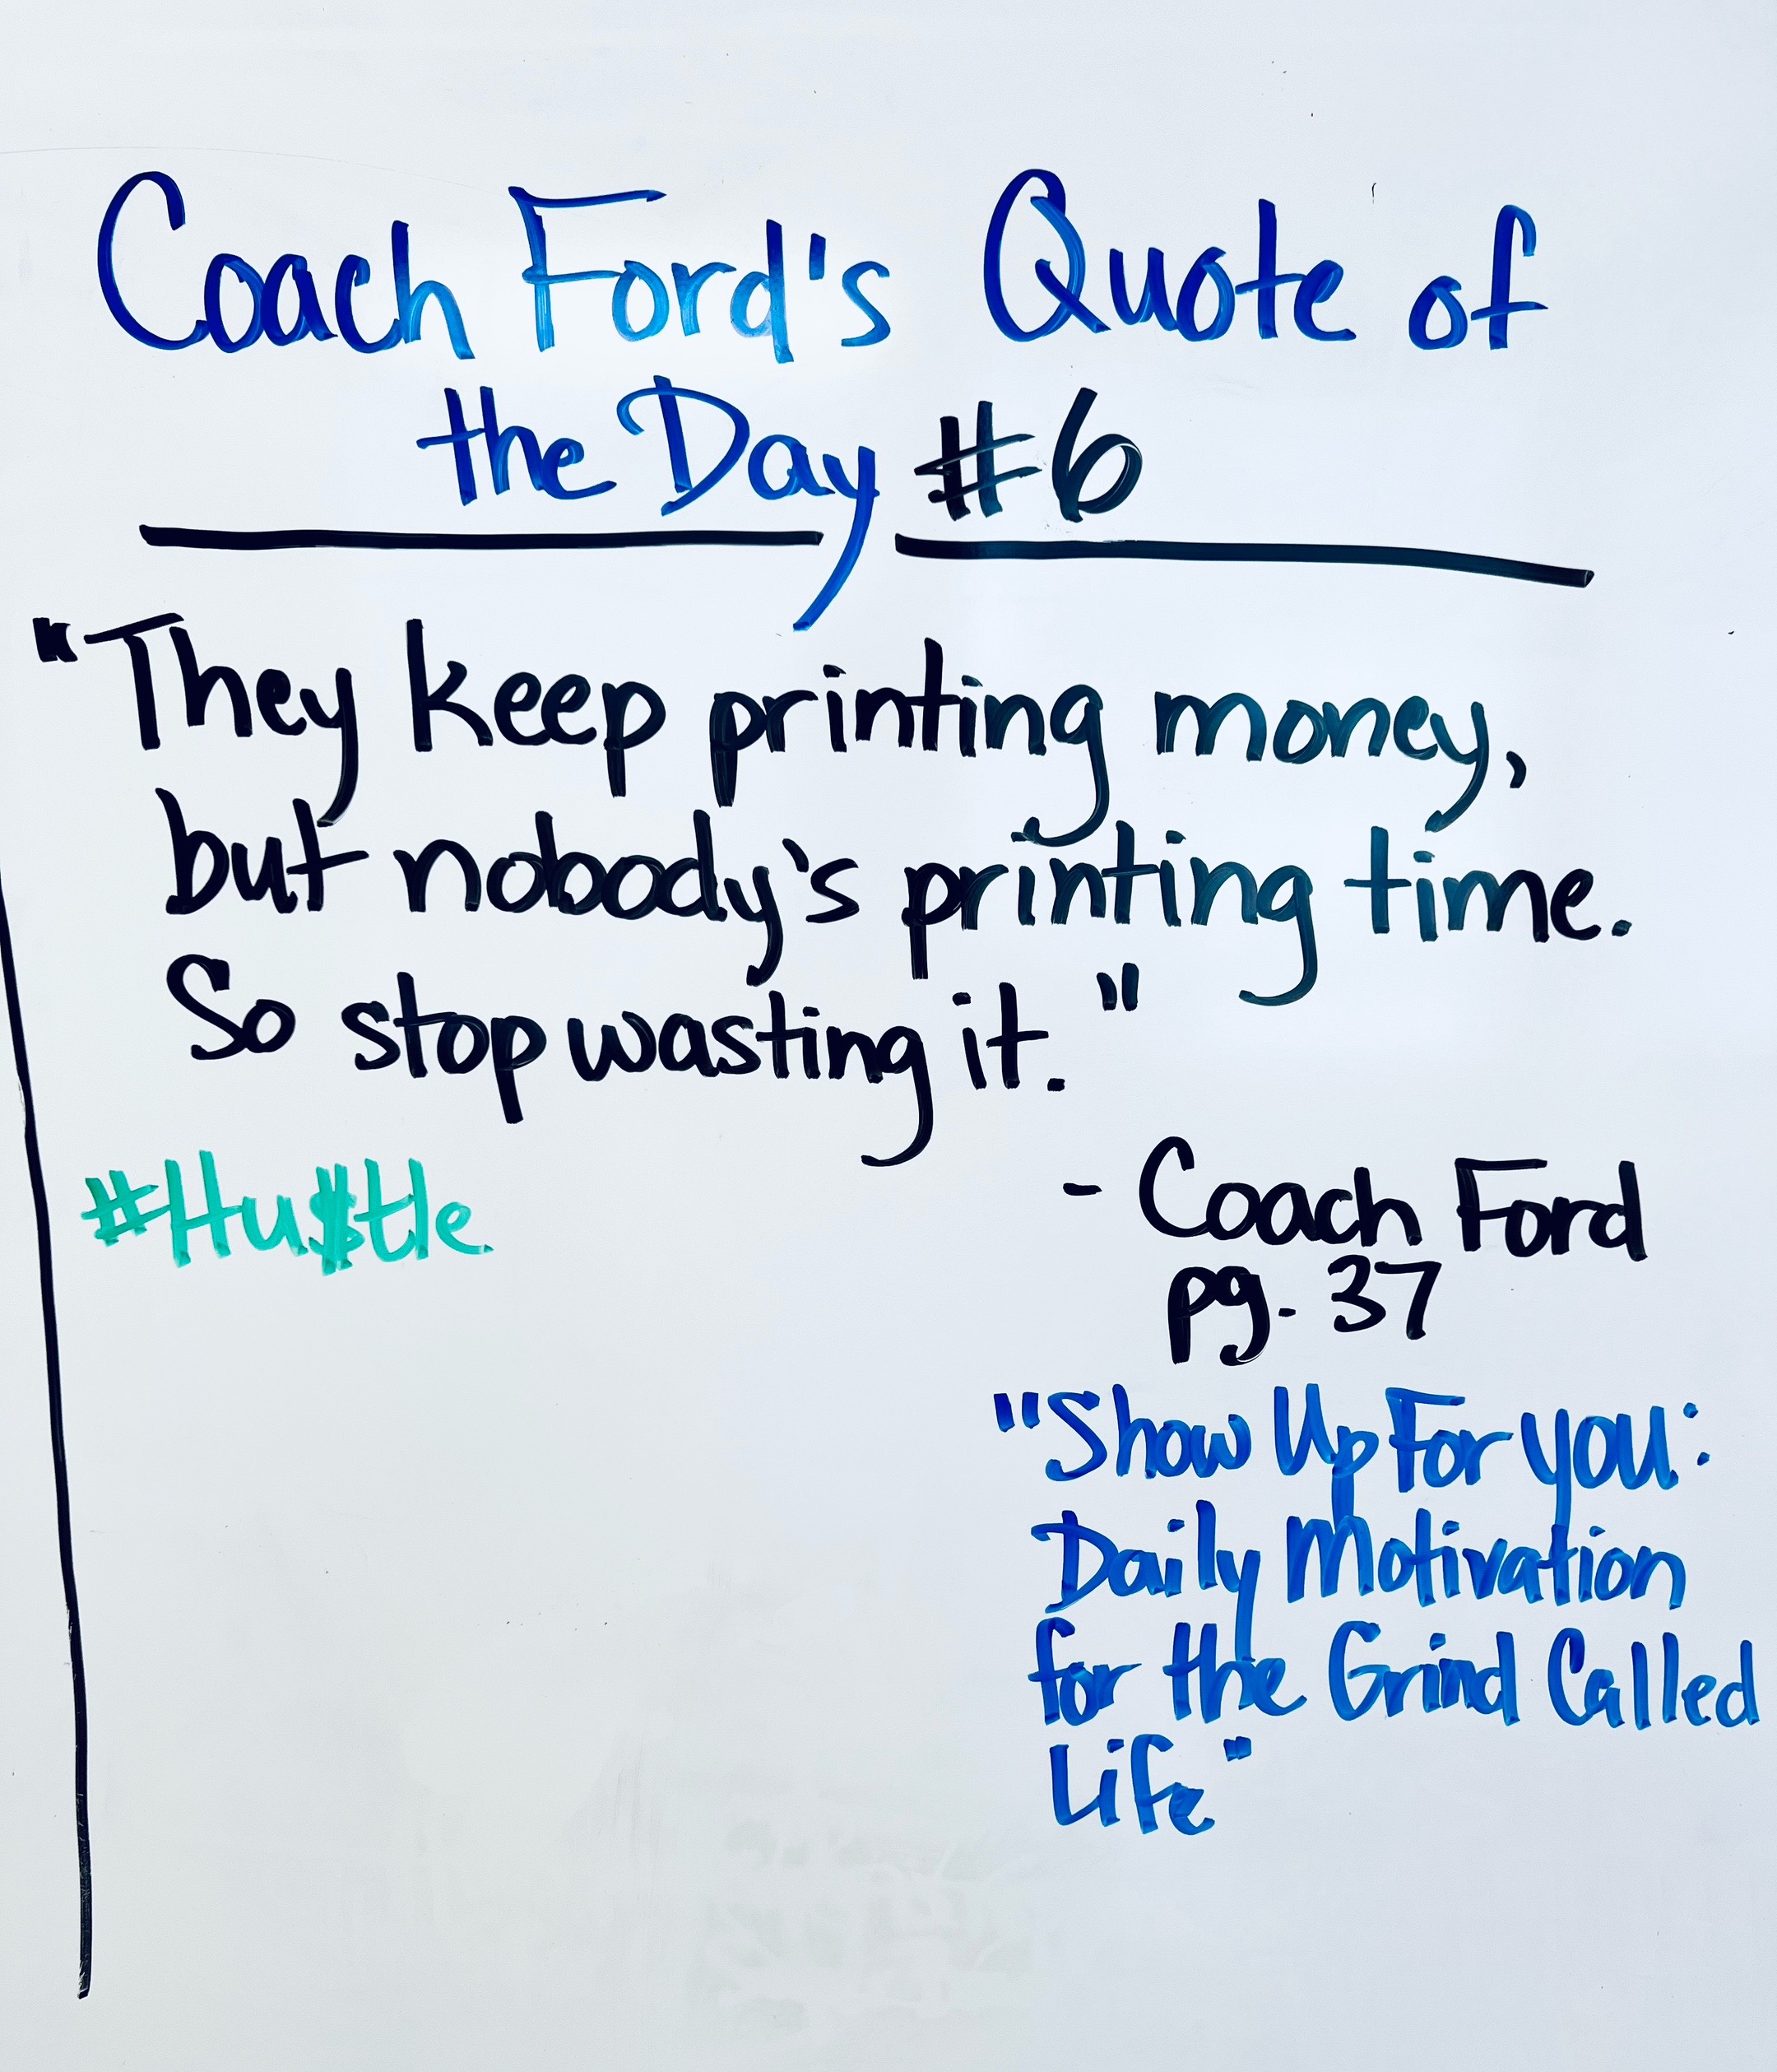 Coach Ford's Quote of
the Day #6
"They keep printing money,
but nobody's printing time.
So stop wasting it."
#Hu$tle
- Coach Ford
pg. 37
"Show Up For you:
Daily Motivation
for the Grind Called
Life"